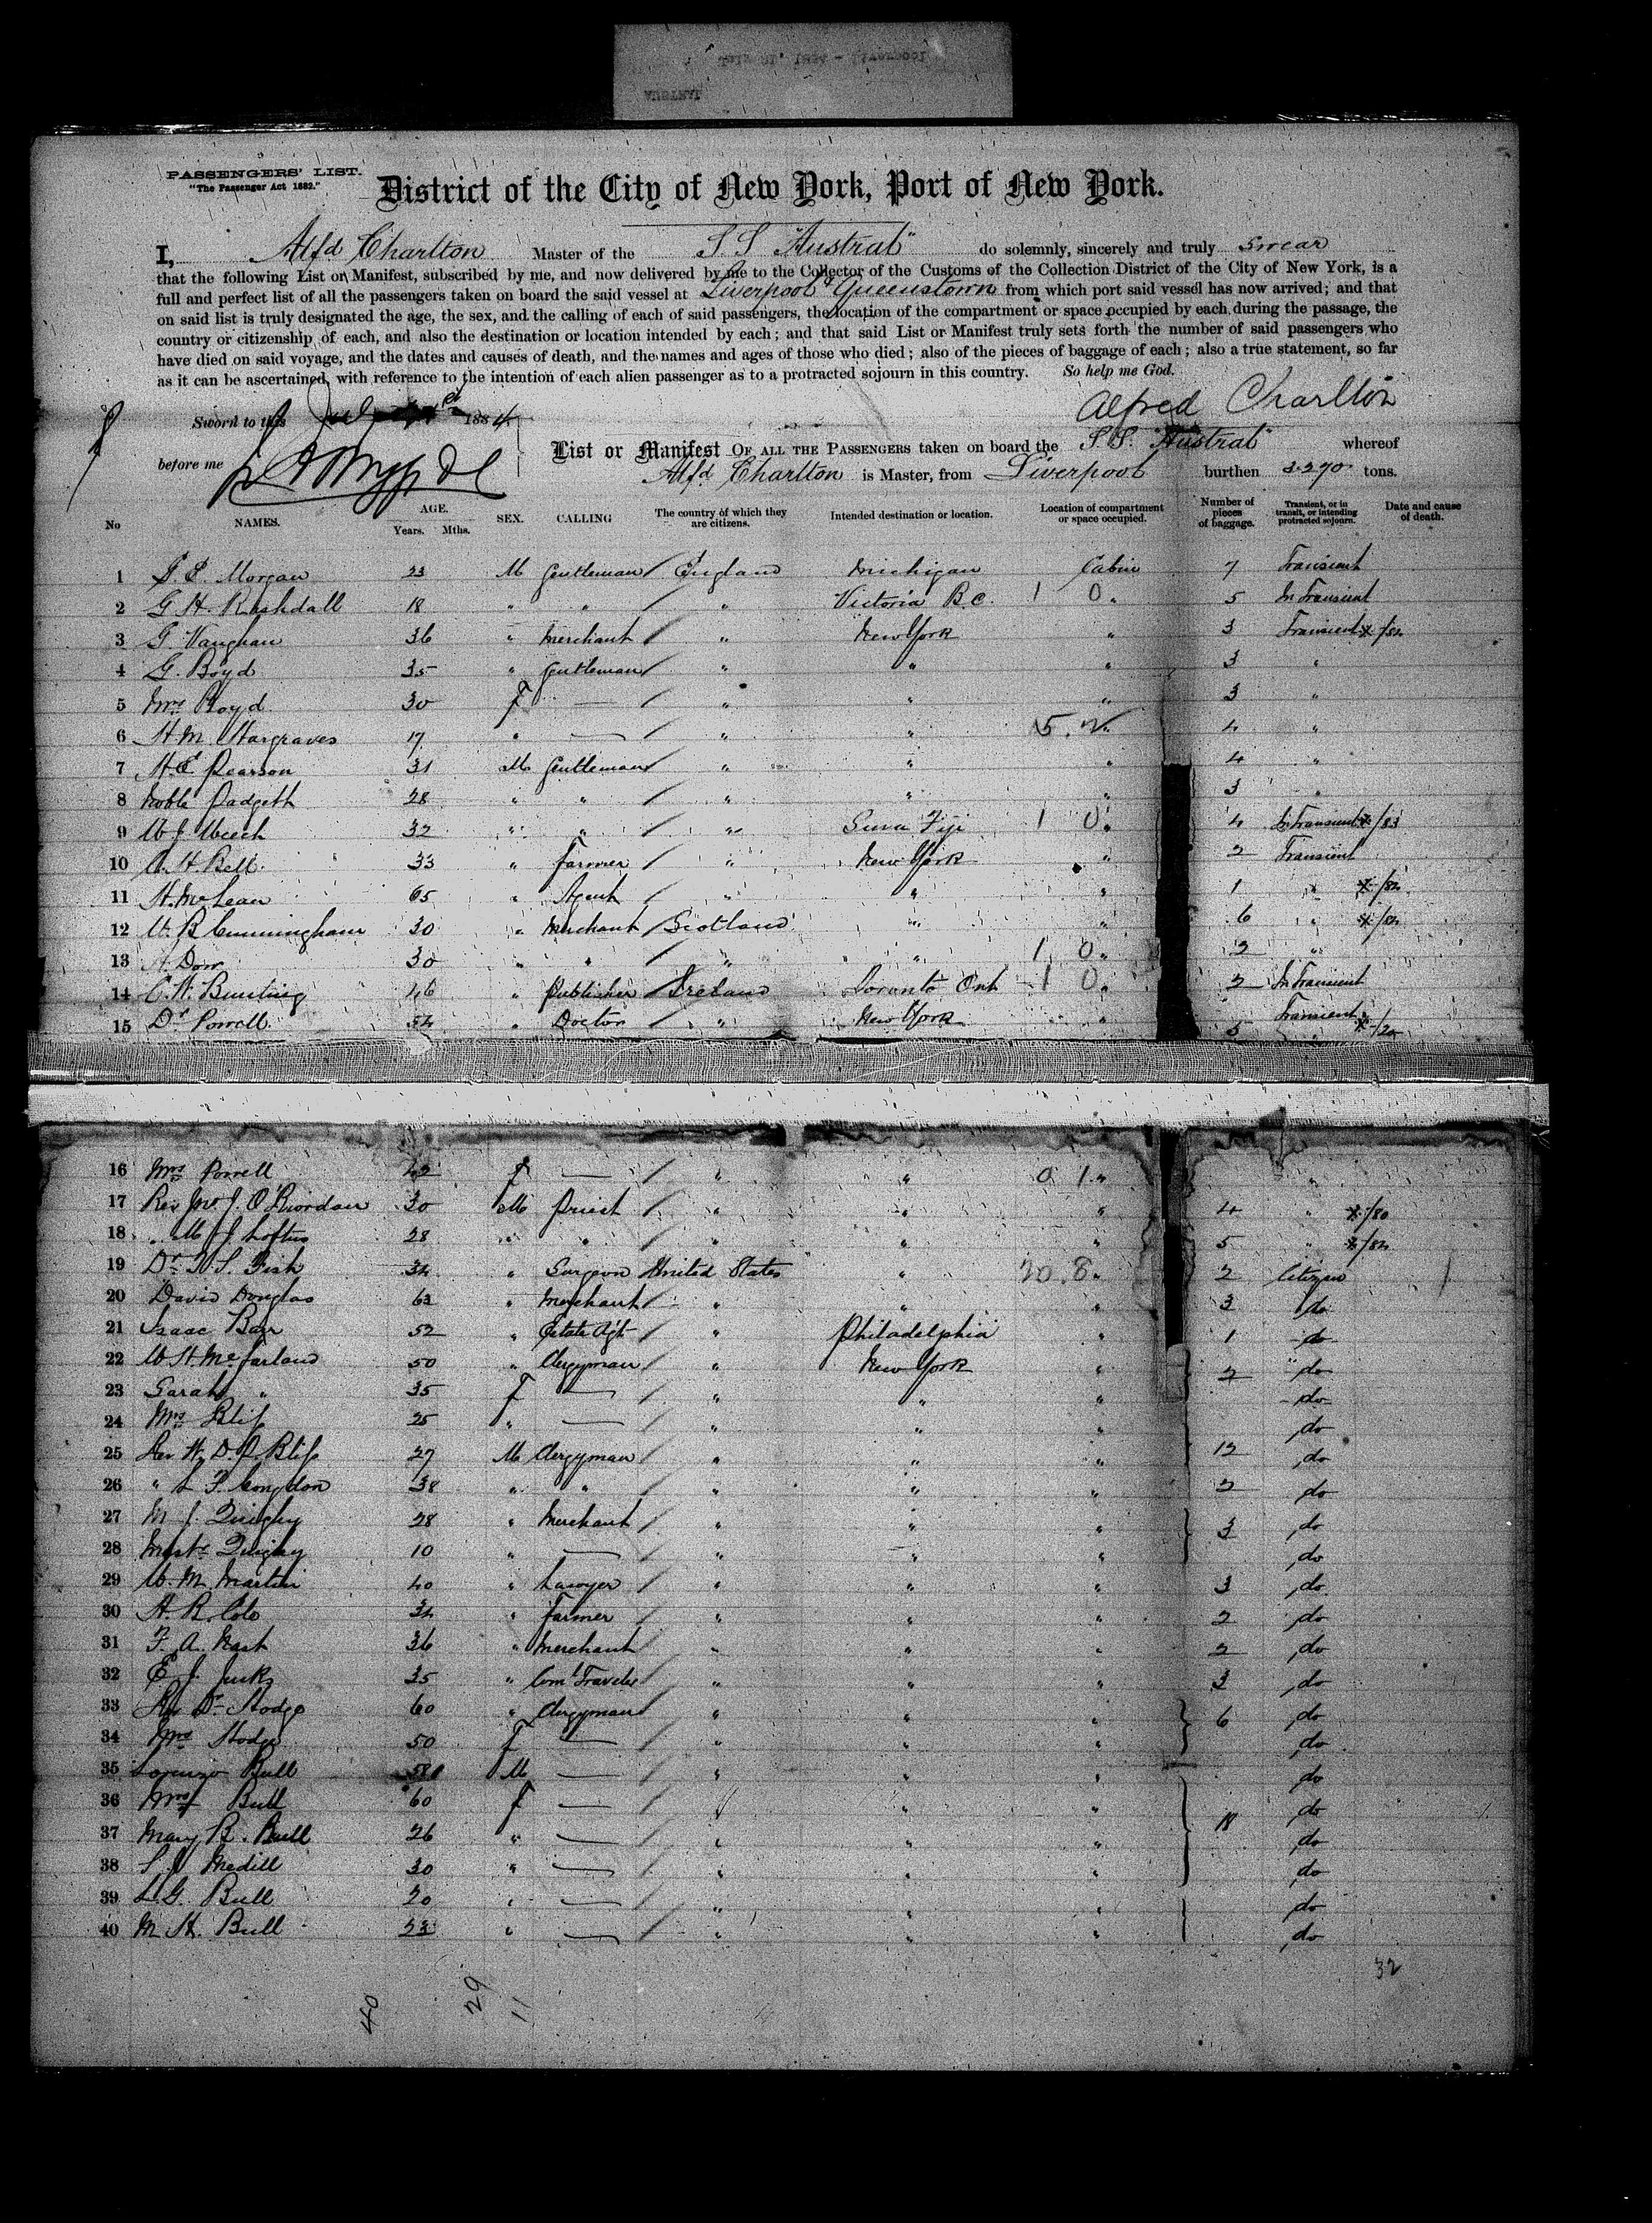 PASSENGERS' LIST.
"The Passenger Act 1882."
District of the City of New York, Port of New York.
I, Alfd Charlton Master of the S.S "Austral" do solemnly, sincerely and truly swear
that the following List or Manifest, subscribed by me, and now delivered by me to the Collector of the Customs of the Collection District of the City of New York, is a
full and perfect list of all the passengers taken on board the said vessel at Liverpool & Queenstown from which port said vessel has now arrived; and that
on said list is truly designated the age, the sex, and the calling of each of said passengers, the location of the compartment or space occupied by each during the passage, the
country or citizenship of each, and also the destination or location intended by each; and that said List or Manifest truly sets forth the number of said passengers who
have died on said voyage, and the dates and causes of death, and the names and ages of those who died; also of the pieces of baggage of each; also a true statement, so far
as it can be ascertained, with reference to the intention of each alien passenger as to a protracted sojourn in this country. So help me God.
Alfred Charlton
Sworn to this July 1884
before me
List or Manifest OF ALL THE PASSENGERS taken on board the S.S. "Austral" whereof
Alfd Charlton is Master, from Liverpool burthen 3270 tons.
No NAMES. AGE. Years. Mths. SEX. CALLING The country of which they are citizens. Intended destination or location. Location of compartment or space occupied. Number of pieces of baggage. Transient, or in transit, or intending protracted sojourn. Date and cause of death.
1 Morgan 23 M Gentleman / England Michigan Cabin 7 Transient
2 G H. Rashdall 18 " " / " Victoria B.C. 1 0 " 5 In Transient
3 G Vaughan 36 " Merchant / " New York " 3 Transient /82
4 G. Boyd 35 " Gentleman / " " " 3 "
5 Mrs Boyd 30 F — " " " 3 "
6 H M. Hargraves 17 " — " " 5. 2 " 4 "
7 H.E. Pearson 31 M Gentleman / " " " 4 "
8 Noble Padgett 28 " " / " " " 3 "
9 W J. Meech 32 " " / " Suva Fiji 1 0 " 4 In Transient /83
10 A. H. Bell 33 " Farmer / " New York " 2 Transient
11 H. McLean 65 " Agent / " " " 1 " /82
12 W. B Cunningham 30 " Merchant / Scotland " " 6 " /82
13 A. Dow 30 " " / " " 1 0 " 2 "
14 C. W. Bunting 46 " Publisher / Ireland Toronto Ont 1 0 " 2 In Transient
15 Dr Powell 54 " Doctor / " New York " 5 Transient
16 Mrs Powell 42 F — / " " 0 1 " "
17 Rev Jno. J. O'Riordan 30 M Priest / " " " 4 " /80
18 " M J Loftus 28 " " / " " " 5 " /82
19 Dr T. S. Fish 34 " Surgeon United States " 20. 8 " 2 Citizen
20 David Douglas 63 " Merchant / " " " 3 do
21 Isaac Barr 52 " Estate Agt / " Philadelphia " 1 do
22 W H. McFarland 50 " Clergyman / " New York " 2 do
23 Sarah " 35 F — / " " " do
24 Mrs Bliss 25 " — / " " " do
25 Rev W. D. P. Bliss 27 M Clergyman / " " " 12 do
26 " L F. Congdon 38 " " / " " " 2 do
27 M J. Quigley 28 " Merchant / " " " 3 do
28 Mastr Quigley 10 " — / " " " do
29 W. M. Martin 40 " Lawyer / " " " 3 do
30 A. R. Cole 34 " Farmer / " " " 2 do
31 F. A. Nast 36 " Merchant / " " " 2 do
32 E J. Jenks 35 " Coml Traveler / " " " 3 do
33 Rev Dr Hodge 60 " Clergyman / " " " 6 do
34 Mrs Hodge 50 F — / " " " do
35 Lorenzo Bull 58 M — / " " " do
36 Mrs Bull 60 F — / " " " 18 do
37 Mary B. Bull 26 " — / " " " do
38 Medill 30 " — / " " " do
39 L.G. Bull 20 " — / " " " do
40 M. H. Bull 23 " — / " " " do
32
40 29 11